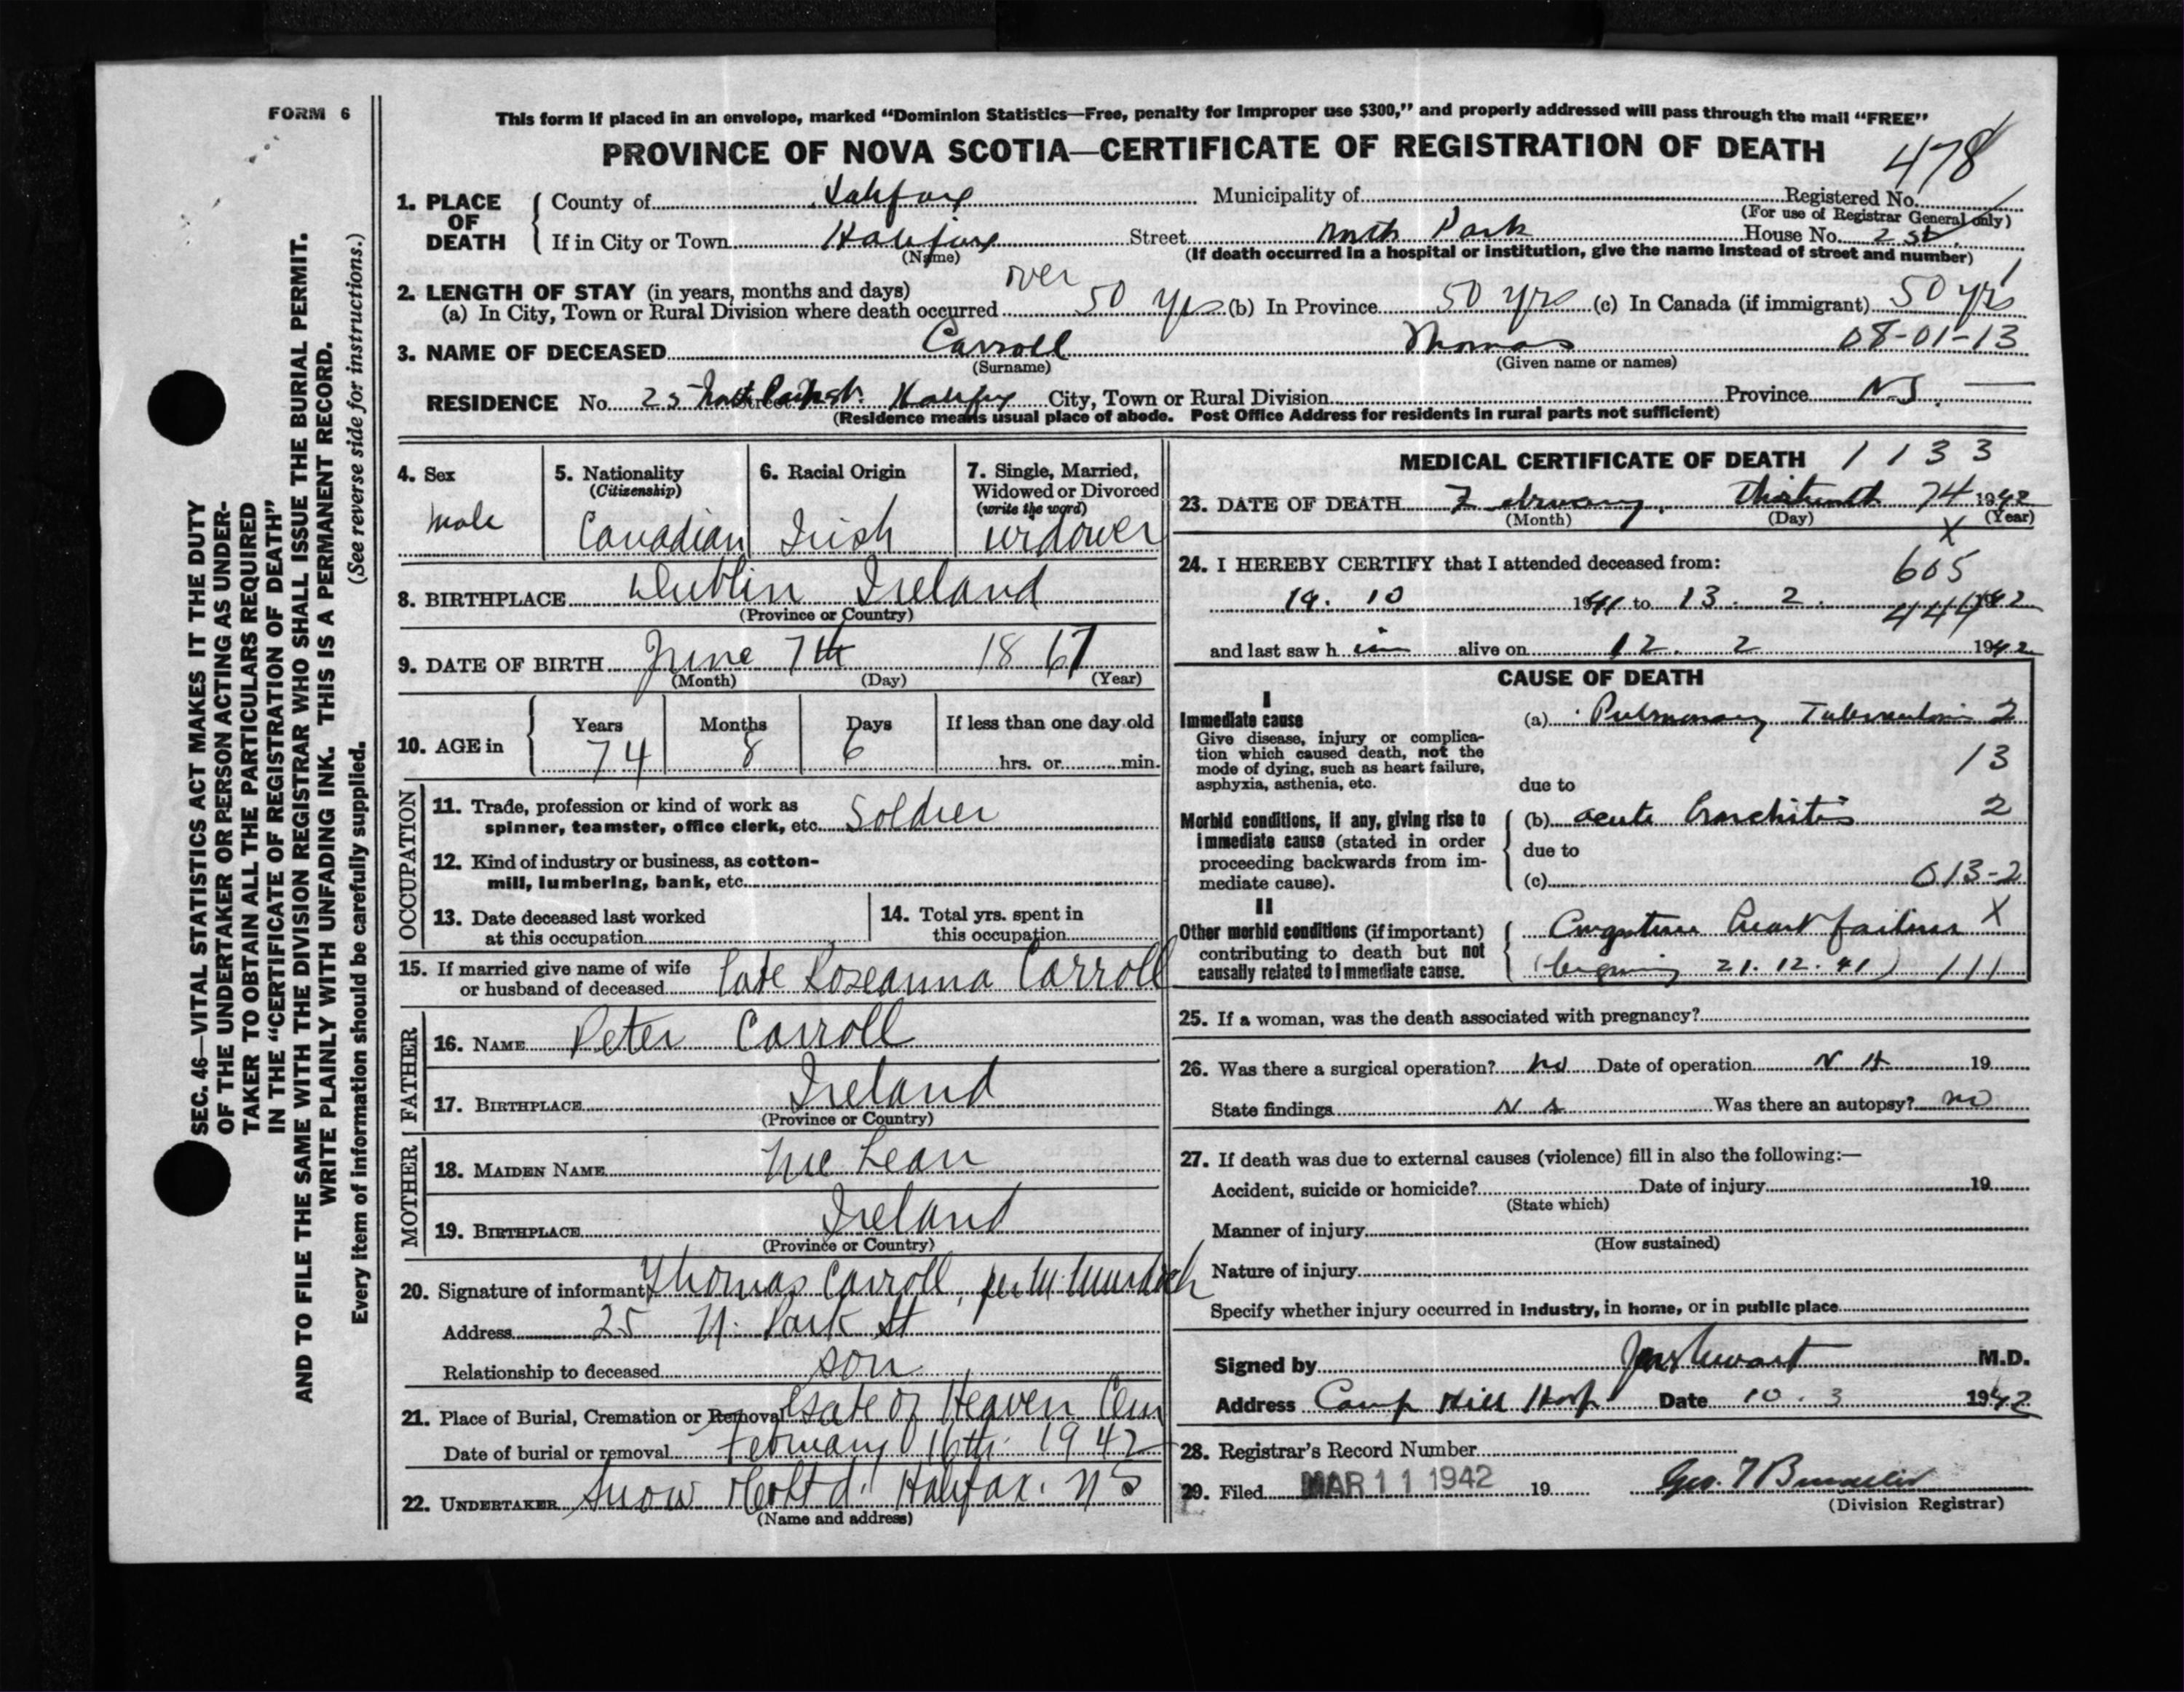 FORM 6
SEC. 46—VITAL STATISTICS ACT MAKES IT THE DUTY
OF THE UNDERTAKER OR PERSON ACTING AS UNDER-
TAKER TO OBTAIN ALL THE PARTICULARS REQUIRED
IN THE "CERTIFICATE OF REGISTRATION OF DEATH"
AND TO FILE THE SAME WITH THE DIVISION REGISTRAR WHO SHALL ISSUE THE BURIAL PERMIT.
WRITE PLAINLY WITH UNFADING INK. THIS IS A PERMANENT RECORD.
Every item of information should be carefully supplied. (See reverse side for instructions.)
This form if placed in an envelope, marked "Dominion Statistics—Free, penalty for improper use $300," and properly addressed will pass through the mail "FREE"
PROVINCE OF NOVA SCOTIA—CERTIFICATE OF REGISTRATION OF DEATH
478
1. PLACE OF DEATH County of Halifax Municipality of Registered No.
(For use of Registrar General only)
If in City or Town Halifax Street North Park House No. 25
(Name) (If death occurred in a hospital or institution, give the name instead of street and number)
2. LENGTH OF STAY (in years, months and days)
(a) In City, Town or Rural Division where death occurred over 50 yrs (b) In Province 50 yrs (c) In Canada (if immigrant) 50 yrs
3. NAME OF DECEASED Carroll Thomas 08-01-13
(Surname) (Given name or names)
RESIDENCE No. 25 North Park St. Street Halifax City, Town or Rural Division Province N.S.
(Residence means usual place of abode. Post Office Address for residents in rural parts not sufficient)
4. Sex
Male
5. Nationality
(Citizenship)
Canadian
6. Racial Origin
Irish
7. Single, Married,
Widowed or Divorced
(write the word)
widower
8. BIRTHPLACE Dublin Ireland
(Province or Country)
9. DATE OF BIRTH June 7th 1867
(Month) (Day) (Year)
10. AGE in Years Months Days If less than one day old
74 8 6 hrs. or min.
OCCUPATION
11. Trade, profession or kind of work as
spinner, teamster, office clerk, etc. Soldier
12. Kind of industry or business, as cotton-
mill, lumbering, bank, etc.
13. Date deceased last worked
at this occupation
14. Total yrs. spent in
this occupation
15. If married give name of wife
or husband of deceased late Roseanna Carroll
FATHER
16. NAME Peter Carroll
17. BIRTHPLACE Ireland
(Province or Country)
MOTHER
18. MAIDEN NAME McLean
19. BIRTHPLACE Ireland
(Province or Country)
20. Signature of informant Thomas Carroll, per M. Murdoch
Address 25 N. Park St
Relationship to deceased son
21. Place of Burial, Cremation or Removal Gate of Heaven Cem
Date of burial or removal February 16th 1942
22. UNDERTAKER Snow & Co Ltd. Halifax. NS
(Name and address)
MEDICAL CERTIFICATE OF DEATH 1133
23. DATE OF DEATH February Thirteenth 74 1942
(Month) (Day) (Year)
X
24. I HEREBY CERTIFY that I attended deceased from:
605
19. 10 1941 to 13. 2. 1942
444
and last saw him alive on 12. 2 1942
CAUSE OF DEATH
I
Immediate cause
Give disease, injury or complica-
tion which caused death, not the
mode of dying, such as heart failure,
asphyxia, asthenia, etc.
(a) Pulmonary Tuberculosis 2
13
due to
Morbid conditions, if any, giving rise to
immediate cause (stated in order
proceeding backwards from im-
mediate cause).
(b) acute bronchitis 2
due to
(c) 013-2
II
Other morbid conditions (if important)
contributing to death but not
causally related to immediate cause.
Congestive heart failure X
(beginning 21.12.41) 111
25. If a woman, was the death associated with pregnancy?
26. Was there a surgical operation? no Date of operation 19
State findings Was there an autopsy? no
27. If death was due to external causes (violence) fill in also the following:—
Accident, suicide or homicide? Date of injury 19
(State which)
Manner of injury
(How sustained)
Nature of injury
Specify whether injury occurred in industry, in home, or in public place
Signed by M.D.
Address Camp Hill Hosp Date 10. 3 1942
28. Registrar's Record Number
29. Filed MAR 11 1942 19
(Division Registrar)